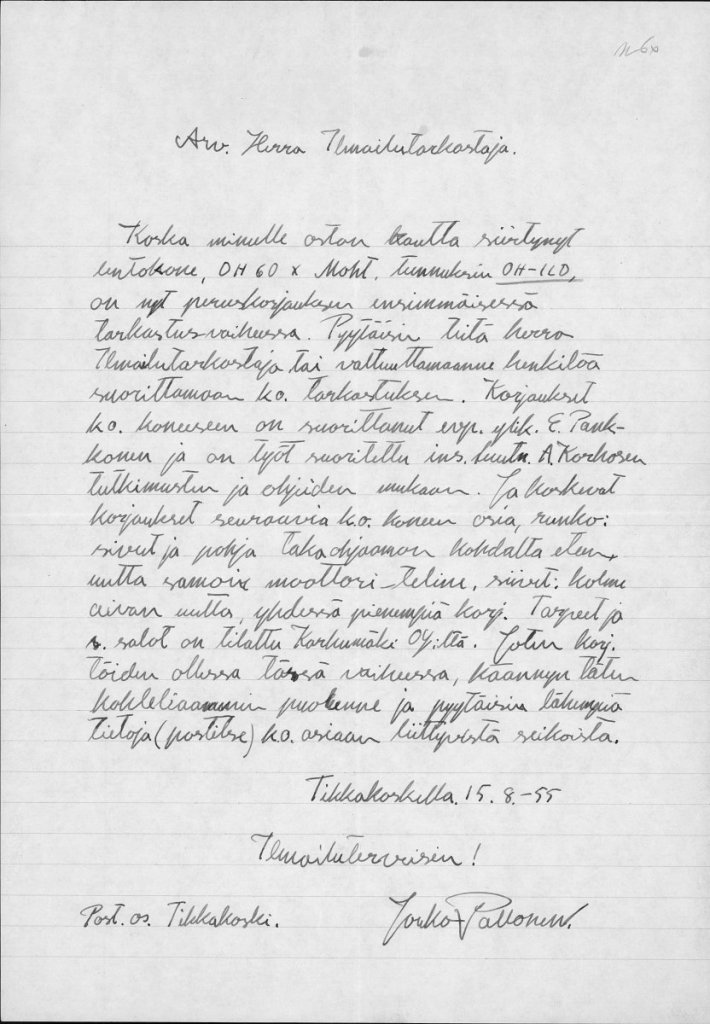 Arv. Herra Ilmailutarkastaja.
Koska minulle oston kautta siirtynyt
lentokone, OH 60 x Moht. tunnuksin OH-ILD,
on nyt peruskorjauksen ensimmäisessä
tarkastusvaiheessa. Pyytäisin teitä herra
Ilmailutarkastaja tai valtuuttamaanne henkilöä
suorittamaan k.o. tarkastuksen. Korjaukset
k.o. koneeseen on suorittanut evp. ylik. E. Pank-
konen ja on työt suoritettu ins. luutn. A. Korhosen
tutkimusten ja ohjeiden mukaan. Ja koskevat
korjaukset seuraavia k.o. koneen osia, runko:
sivut ja pohja takaohjaamon kohdalta eteen
uutta samoin moottori-teline, siivet: kolme
aivan uutta, yhdessä pienempiä korj. Tarpeet ja
s. salot on tilattu Karhumäki Oy:ltä. Joten korj.
töiden ollessa tässä vaiheessa, käännyn täten
kohteliaammin puoleenne ja pyytäisin lähempiä
tietoja (postitse) k.o. asiaan liittyvistä seikoista.
Tikkakoskella. 15. 8. -55
Ilmailuterveisin!
Post. os. Tikkakoski.
Jouko Pallonen.